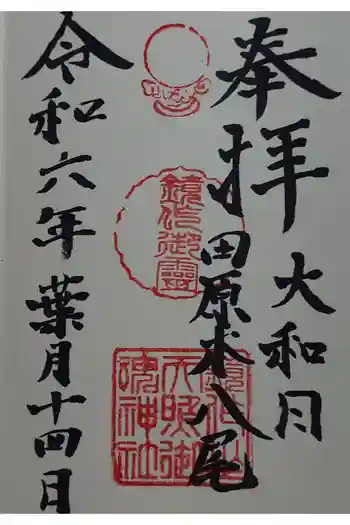 奉拝
大和国
田原本八尾
鏡作御霊
鏡作坐
天照御
魂神社
令和六年葉月十四日